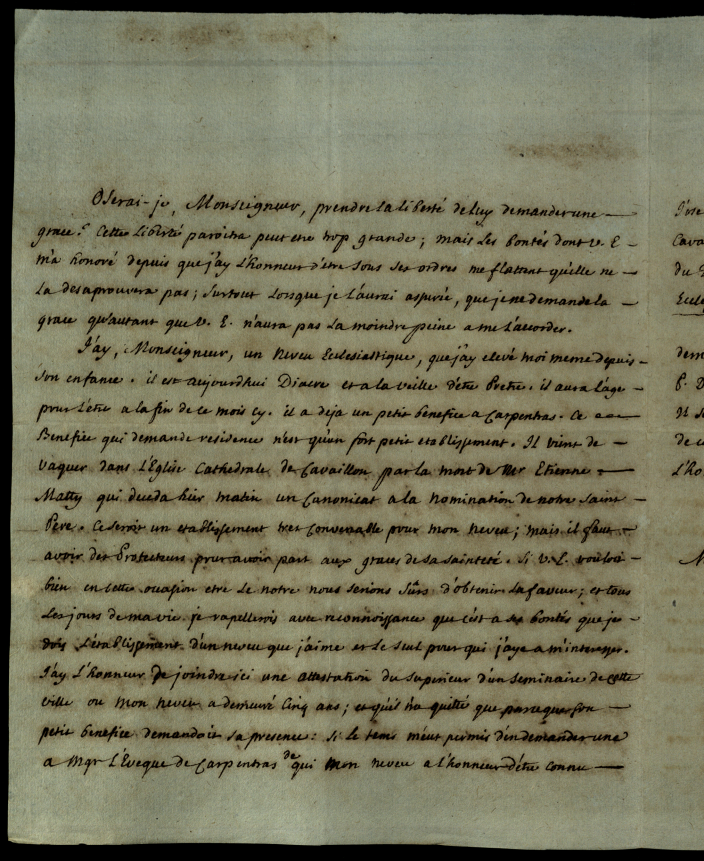 Oserai-je, Monseigneur, prendre la liberté de luy demander une
grace? Cette Liberté paroitra peut etre trop grande; mais Les bontés dont V. E.
m'a honoré depuis que j'ay L'honneur d'etre sous ses ordres me flattent qu'elle ne
La desaprouvera pas; surtout Lorsque je L'aurai assurée, que je ne demande la
grace qu'autant que V. E. n'aura pas La moindre peine a me L'accorder.
J'ay, Monseigneur, un Neveu Ecclesiastique, que j'ay elevé moi meme depuis
son enfance. il est aujourdhui Diacre et a la veille d'etre Pretre. il aura l'age
pour L'etre a la fin de ce mois cy. il a deja un petit benefice a Carpentras. Ce
Benefice qui demande residence n'est qu'un fort petit etablissement. Il vient de
vaquer dans L'Eglise Cathedrale de Cavaillon par la mort de Mr Etienne
Matty qui deceda hier matin un Canonicat a la Nomination de notre saint
Pere. Ce seroit un etablissement tres convenable pour mon Neveu; mais il faut
avoir des Protecteurs pour avoir part aux graces de sa sainteté. Si V. E. vouloit
bien en cette occasion etre Le notre nous serions sûrs d'obtenir sa faveur; et tous
Les jours de ma vie je rapellerois avec reconnoissance que c'est a ses bontés que je
dois L'établissement d'un neveu que j'aime et Le seul pour qui j'aye a m'interesser.
J'ay L'honneur de joindre ici une attestation du superieur d'un seminaire de cette
ville ou mon Neveu a demeuré Cinq ans; et qu'il n'a quitté que parceque son
petit benefice demandoit sa presence: Si le tems m'eut permis d'en demander une
a Mgr L'Eveque de Carpentras de qui mon neveu a l'honneur d'etre connu
J'ose
Cava
du
Eccle
dem
de c
L'ho